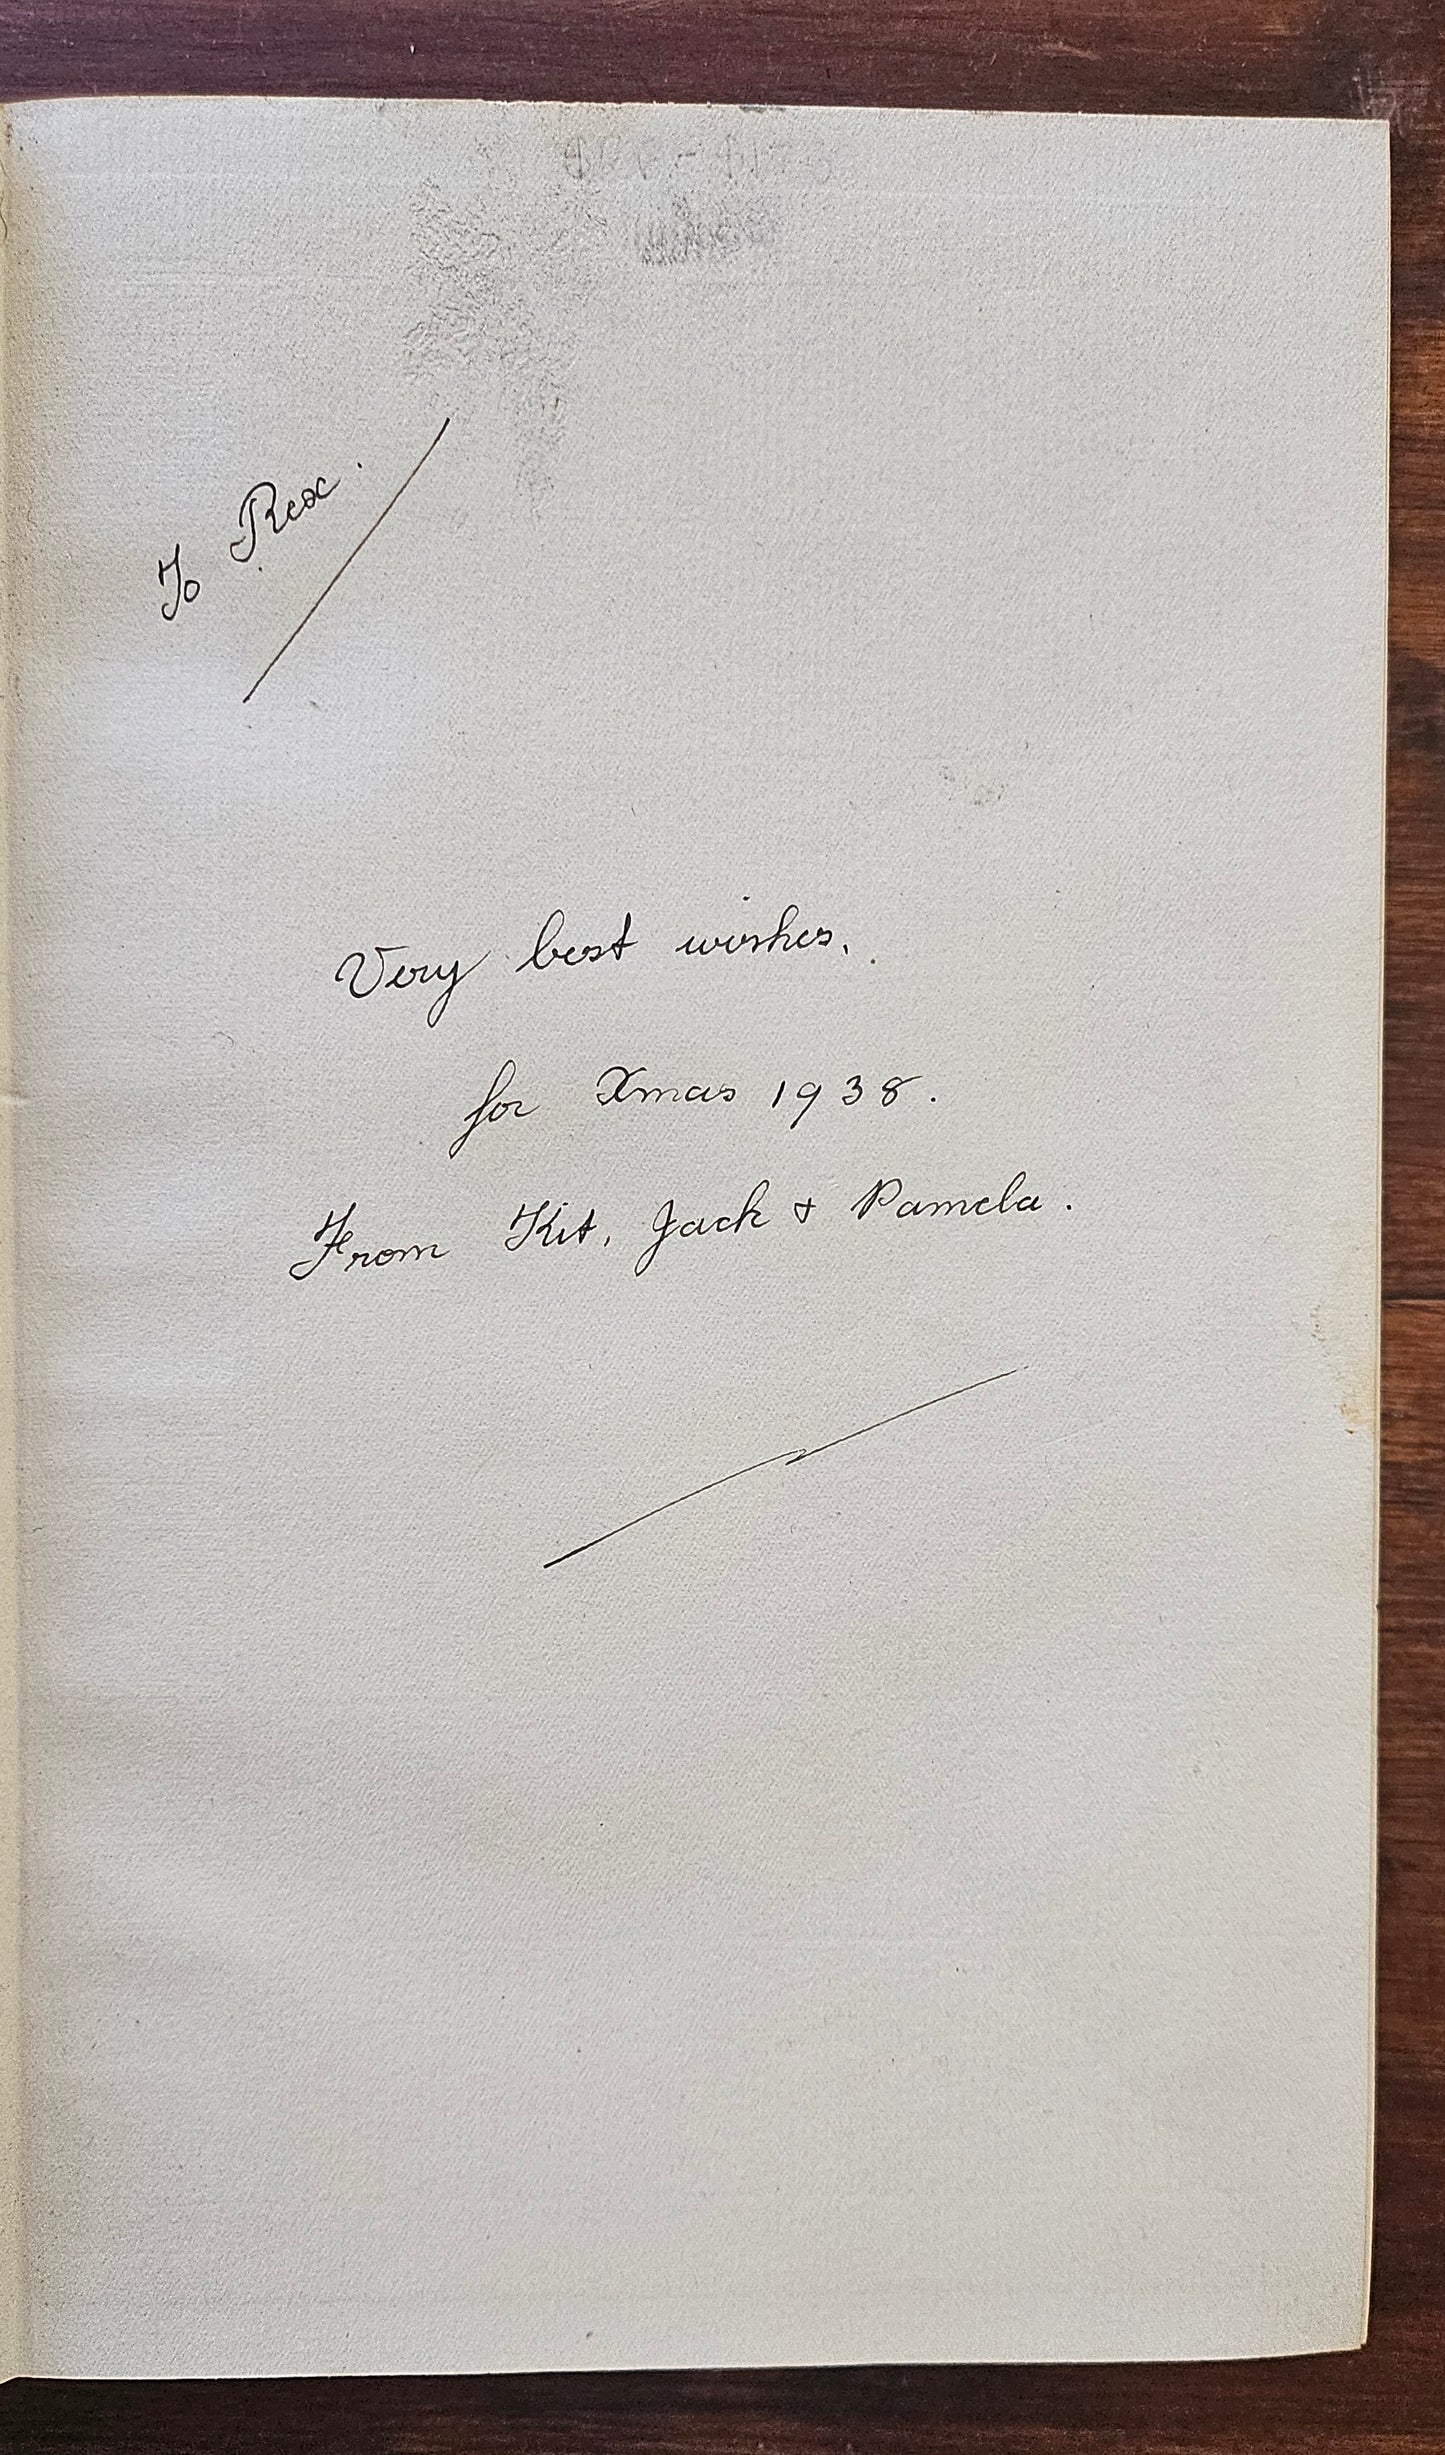 To Rex.
Very best wishes,
for Xmas 1938.
From Kit, Jack & Pamela.